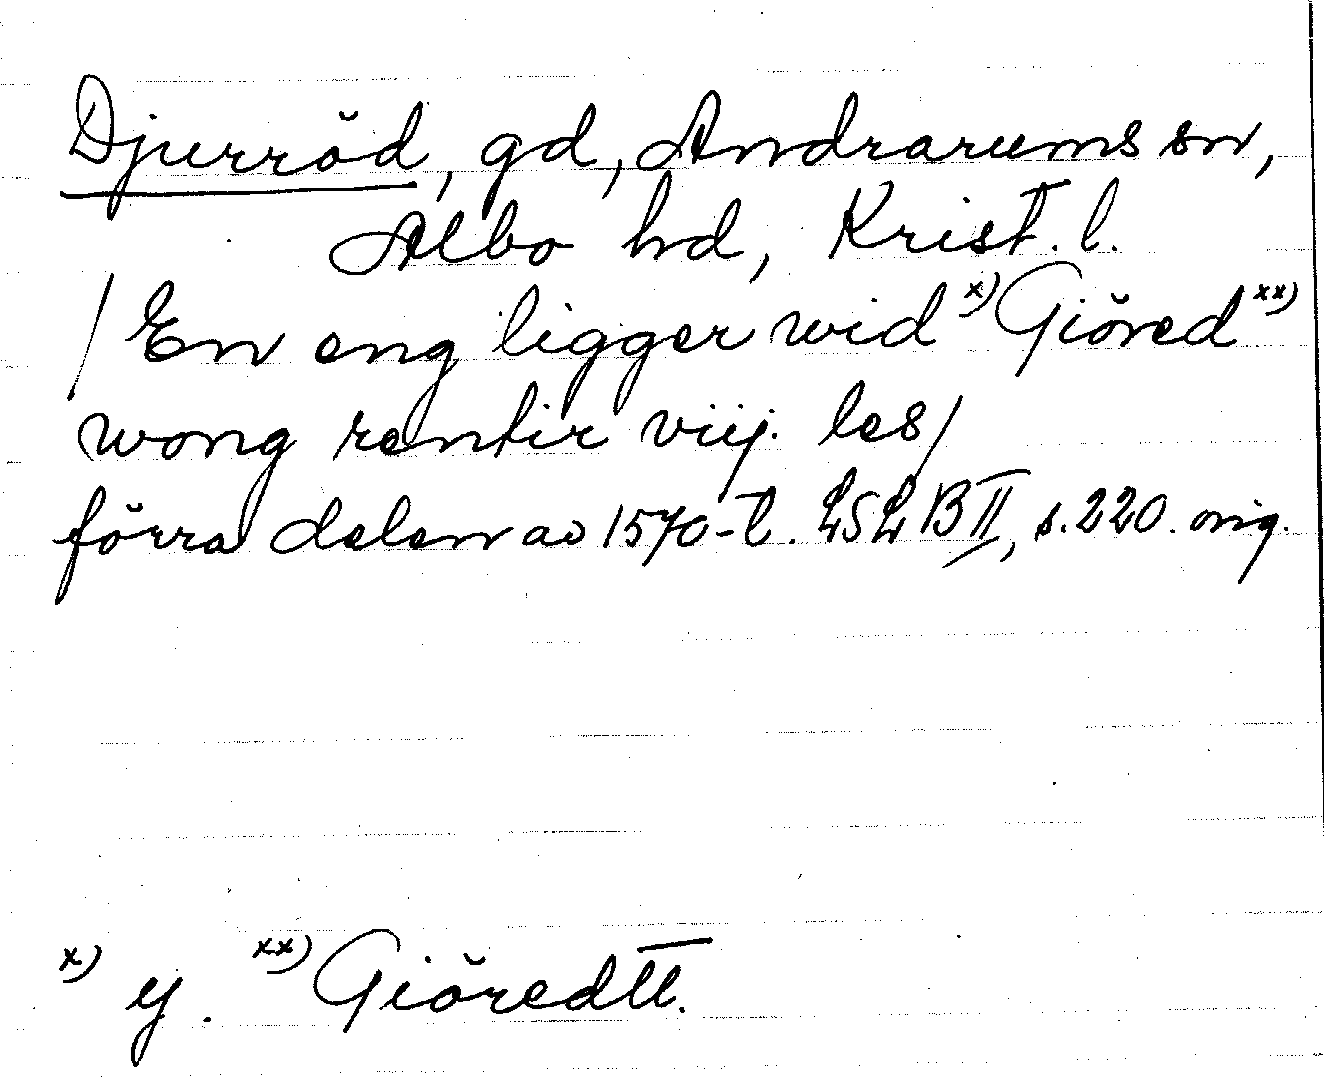 Djurröd, gd, Andrarums sn,
Albo hd, Krist. l.
/ En eng ligger wid x) Giöred xx)
wong rentir viij. les /
förra delen av 1570-t. LSLB II, s. 220. orig.
x) y. xx) Giöredtt.